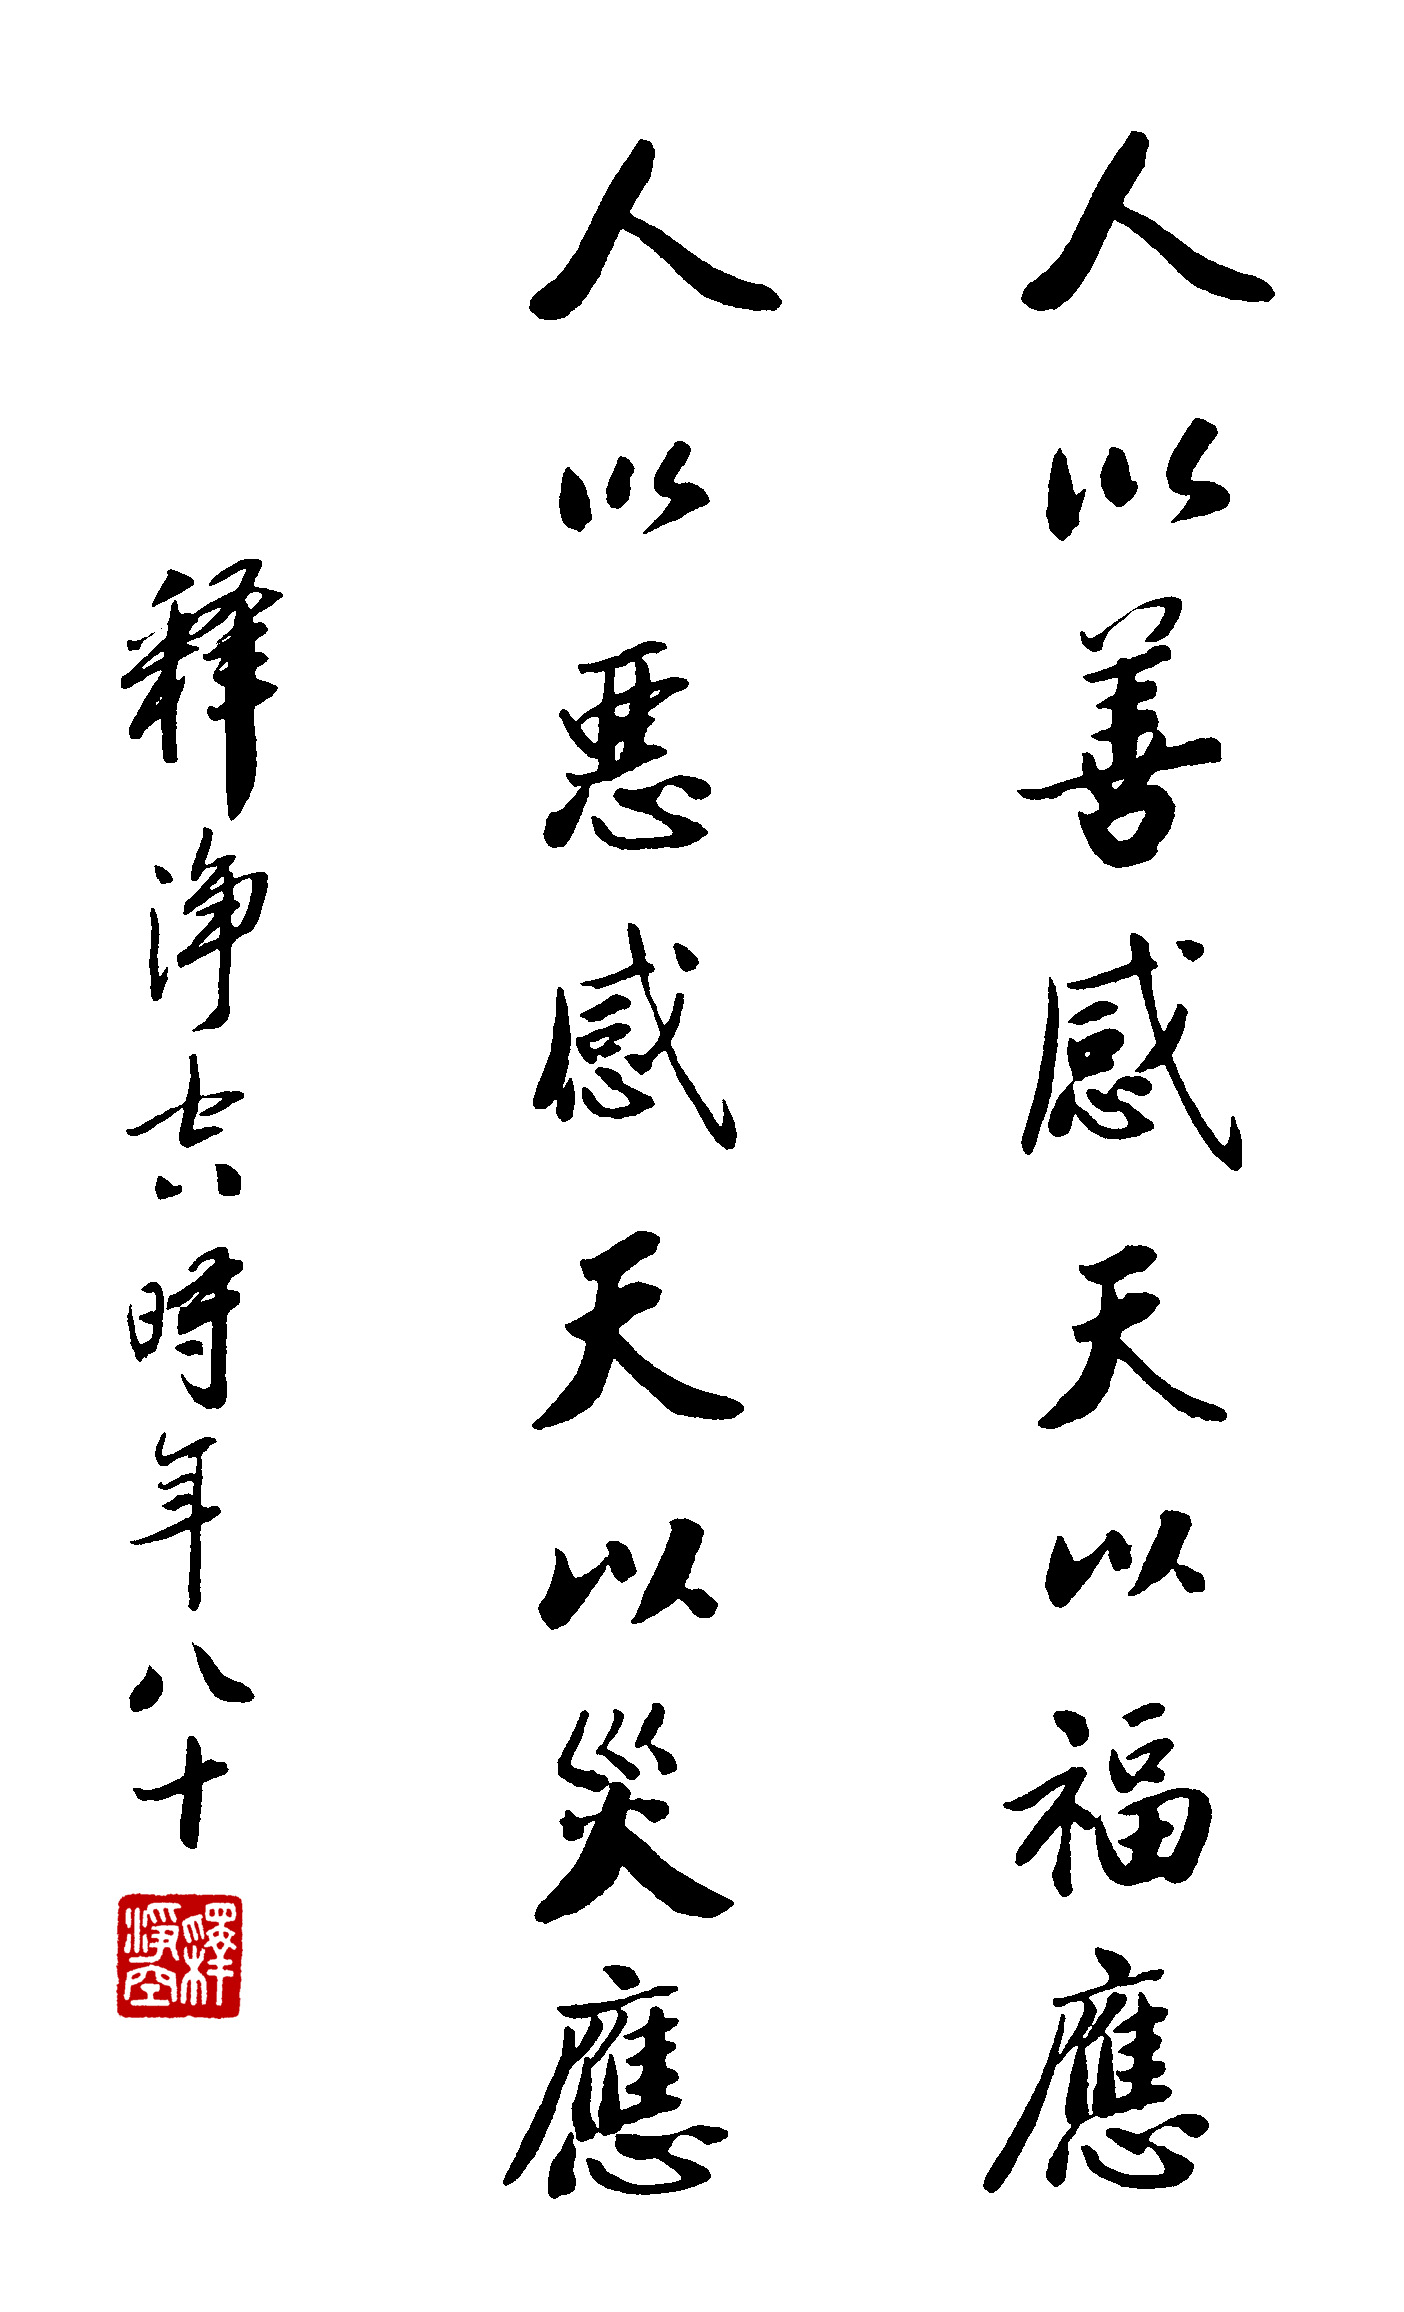 人以善感天以福應
人以惡感天以災應
釋淨空時年八十
釋淨空